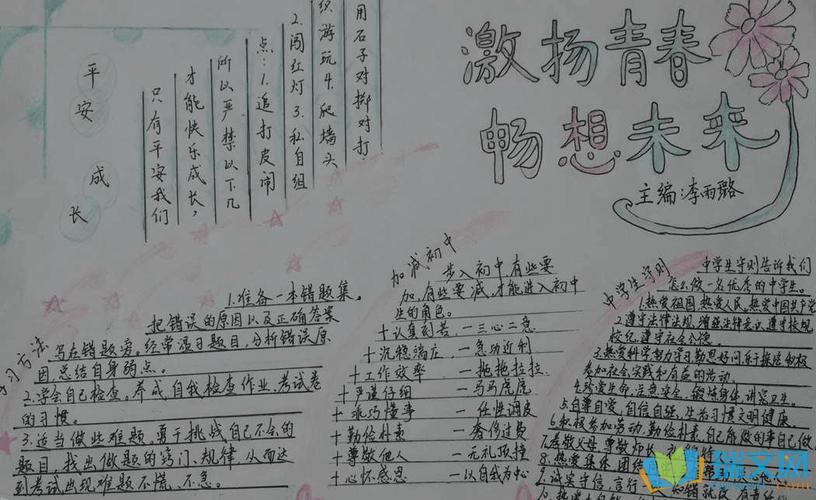 激扬青春
畅想未来
主编:李雨璐
平安成长
只有平安我们
才能快乐成长,
所以严禁以下几
点:1.追打皮闹
2.闯红灯3.私自组
织游玩4.爬墙头
用石子对掷对打
学习方法
1.准备一本错题集。
把错误的原因以及正确答案
写在错题旁。经常温习题目,分析错误原
因总结自身弱点。
2.学会自己检查。养成自我检查作业、考试卷
的习惯。
3.适当做些难题,勇于挑战自己不会的
题目,找出做题的窍门、规律,从而达
到考试出现难题不慌、不急。
加减初中
步入初中,有些要
加,有些要减,才能进入初中
生的角色。
+认真刻苦 一三心二意
+沉稳满庄 一急功近利
+工作效率 一拖拖拉拉
+严谨仔细 一马马虎虎
+乖巧懂事 一任性调皮
+勤俭朴素 一奢侈过费
+尊敬他人 一无礼顶撞
+心怀感恩 一以自我为中心
中学生守则
中学生守则告诉我们
怎么做一名优秀的中学生。
1.热爱祖国,热爱人民,热爱中国共产党
2.遵守法律法规,增强法律意识,遵守校规
校纪,遵守社会公德。
3.热爱科学,努力学习,勤思好问,乐于探究,积极
参加社会实践和有益的活动。
4.珍爱生命,注意安全,锻炼身体,讲究卫生。
5.自尊自爱,自信自强,生活习惯文明健康。
6.积极参加劳动,勤俭朴素,自己能做的事自己做
7.孝敬父母,尊敬师长
8.热爱集体,团结
9.诚实守信,言行一
瑞文网